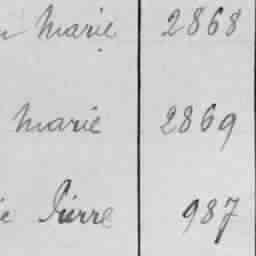 Marie 2868
Marie 2869
Pierre 987